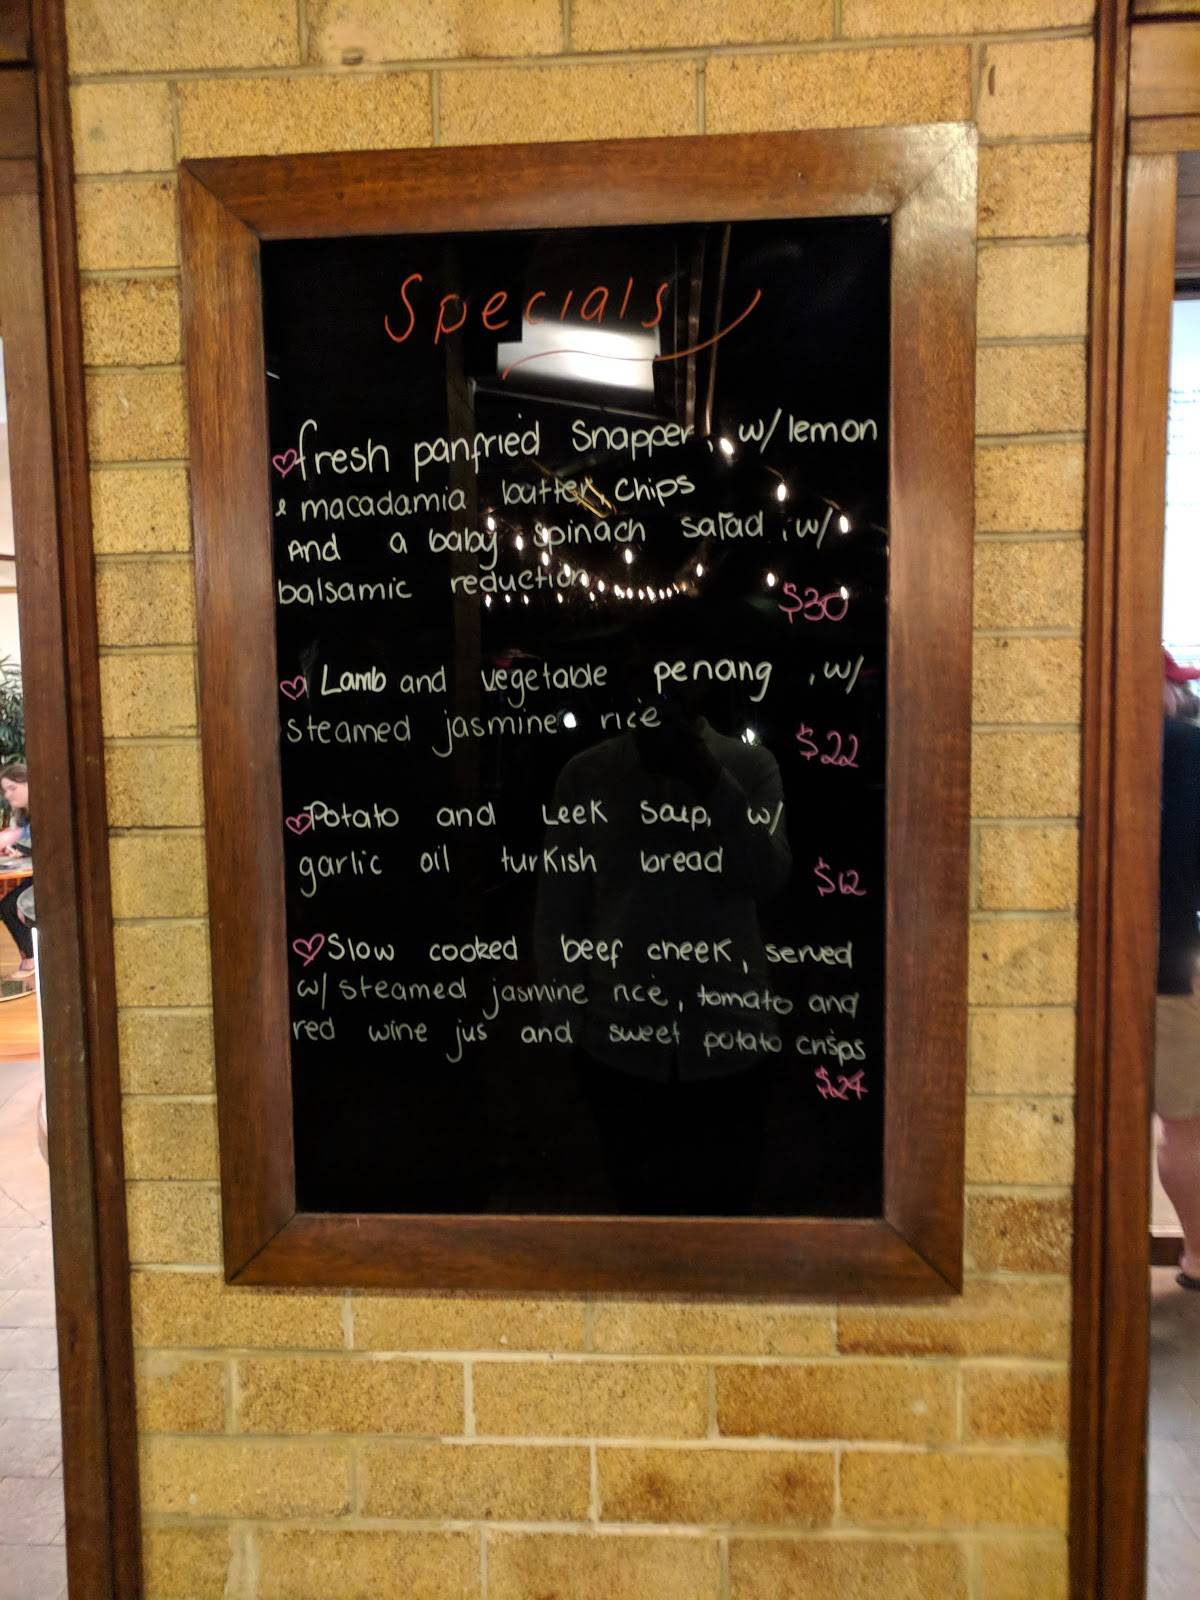 Specials
fresh panfried Snapper, w/ lemon
& macadamia butter, Chips
And a baby spinach salad, w/
balsamic reduction
$30
Lamb and vegetable penang, w/
steamed jasmine rice
$22
Potato and Leek Soup, w/
garlic oil turkish bread
$12
Slow cooked beef cheek, served
w/ steamed jasmine rice, tomato and
red wine jus and sweet potato crisps
$24